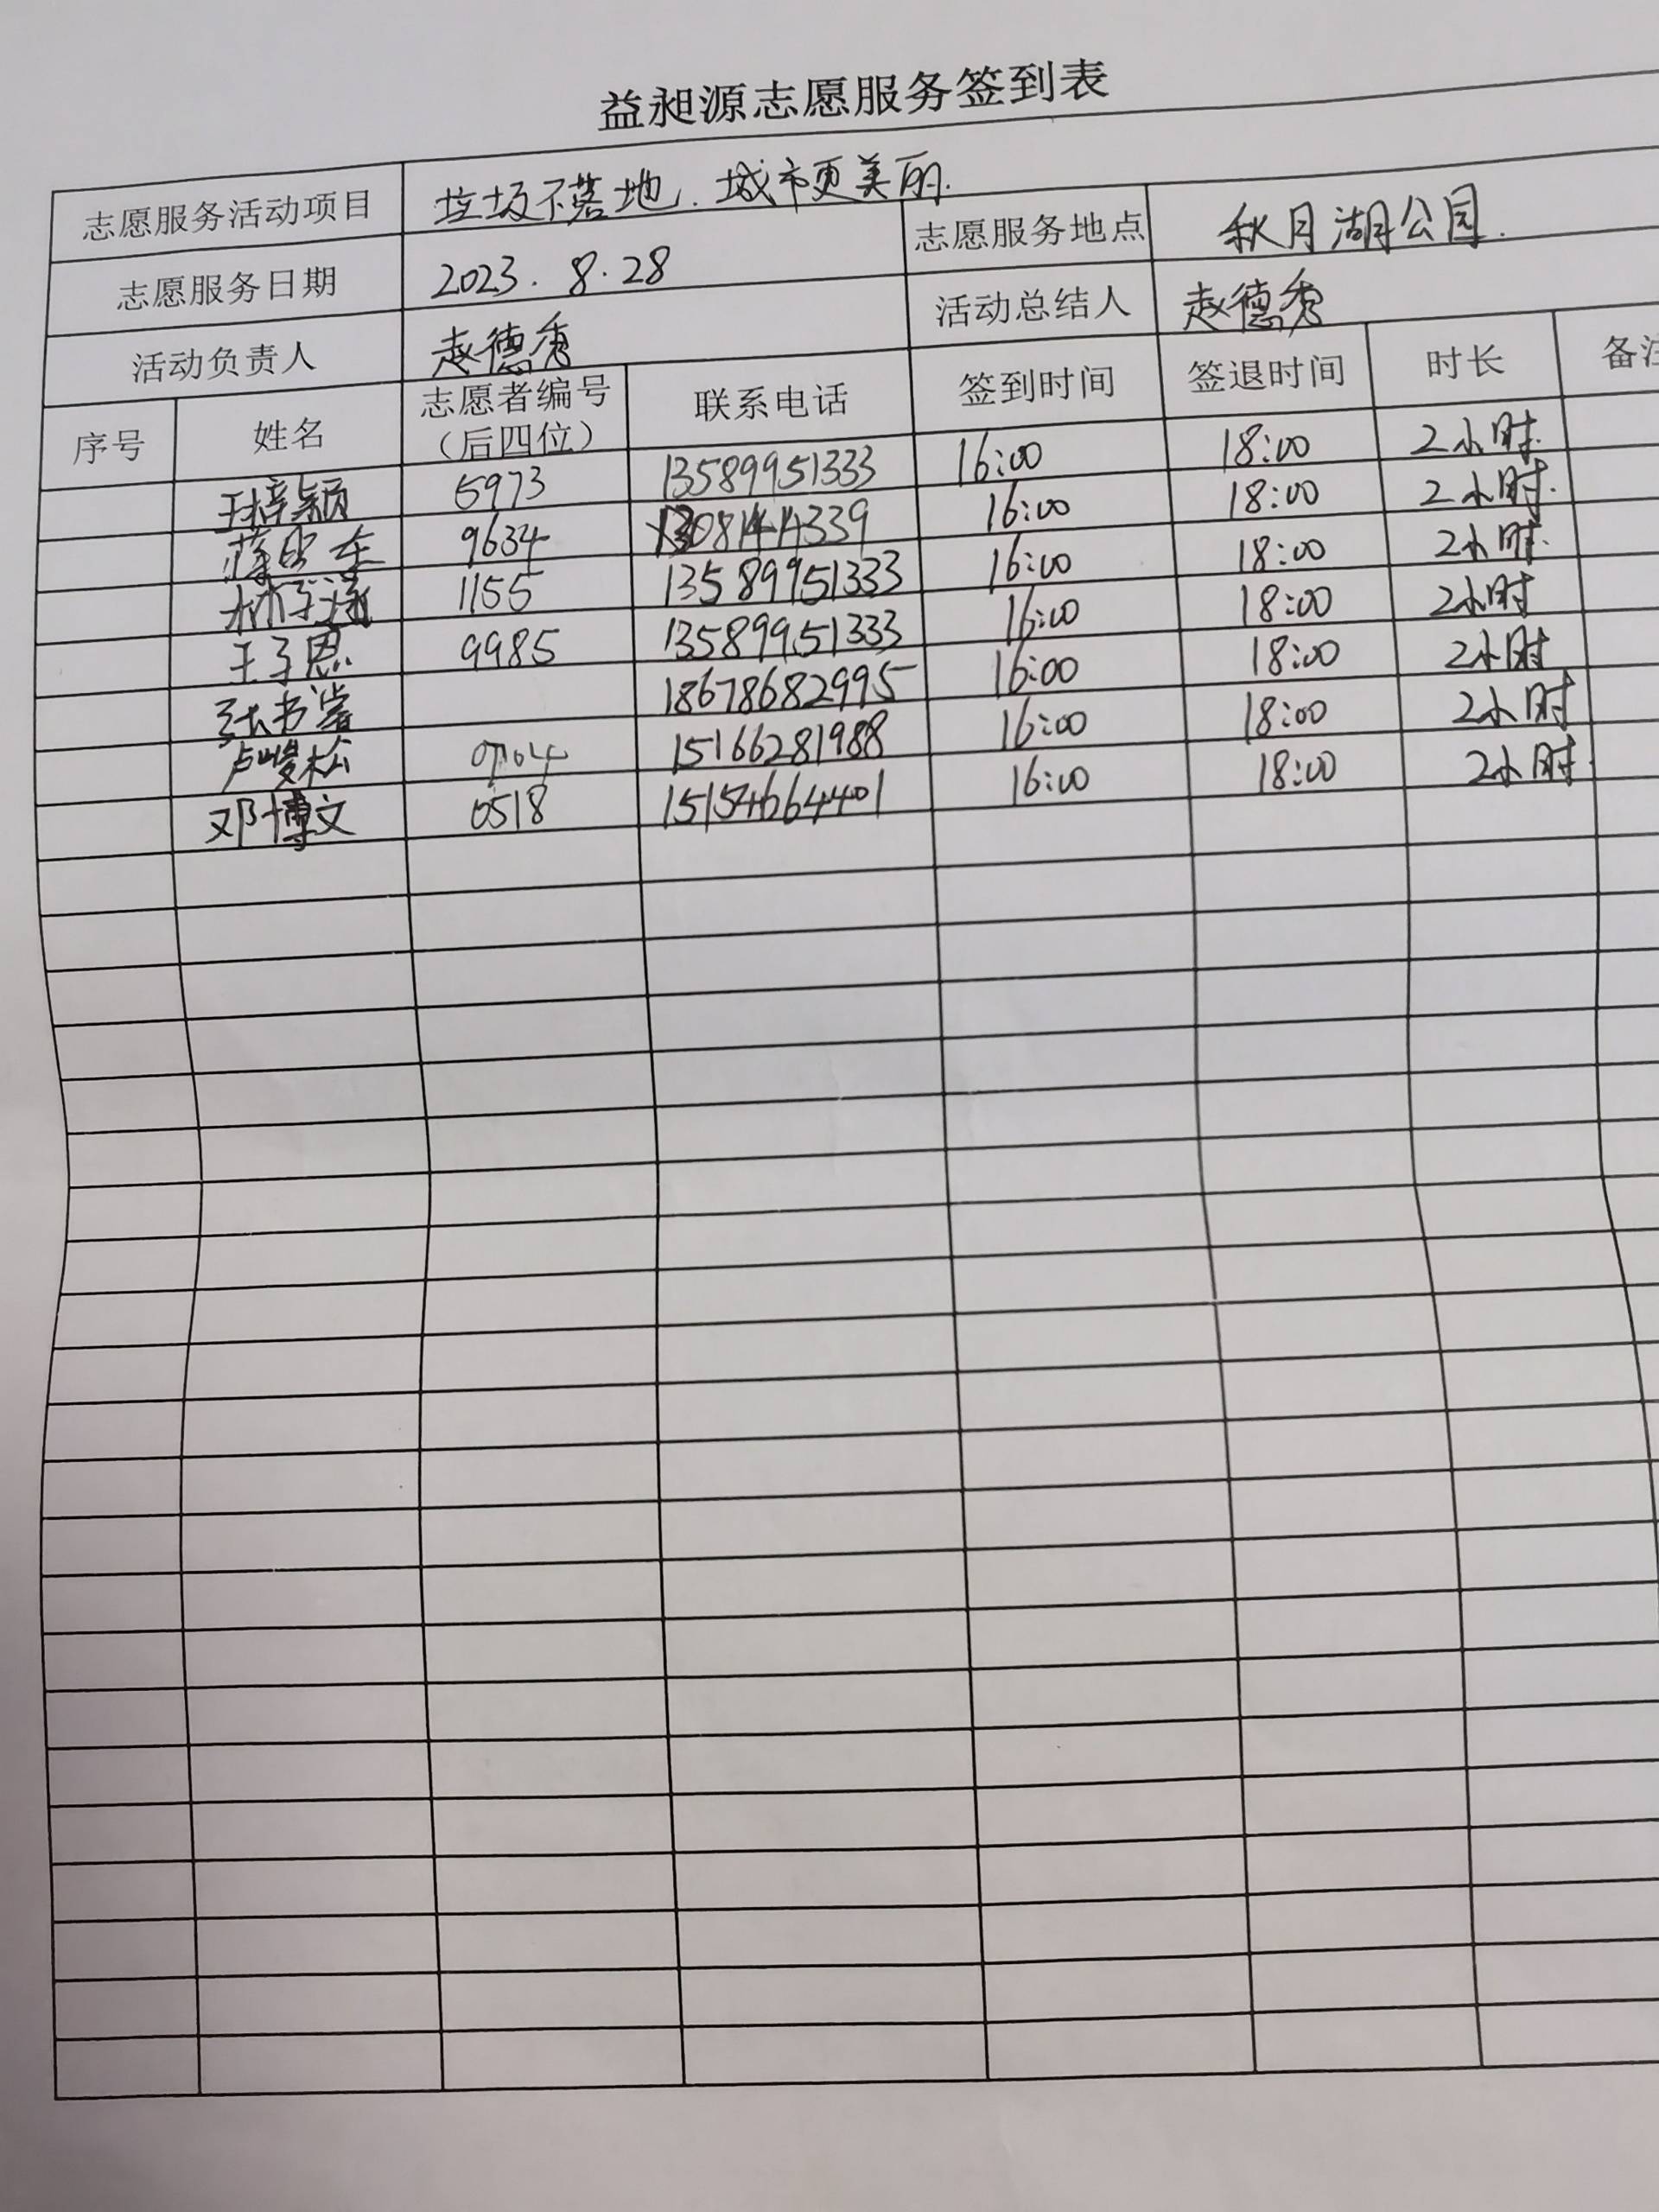 益昶源志愿服务签到表
志愿服务活动项目 垃圾不落地.城市更美丽.
志愿服务日期 2023.8.28 志愿服务地点 秋月湖公园.
活动负责人 赵德秀 活动总结人 赵德秀
序号 姓名 志愿者编号（后四位） 联系电话 签到时间 签退时间 时长 备注
王梓颖 5973 13589951333 16:00 18:00 2小时.
9634 16:00 18:00 2小时.
林子涵 1155 13589951333 16:00 18:00 2小时.
王子恩 9985 13589951333 16:00 18:00 2小时
张书 18678682995 16:00 18:00 2小时
卢峻松 15166281988 16:00 18:00 2小时
邓博文 0518 15154664401 16:00 18:00 2小时.